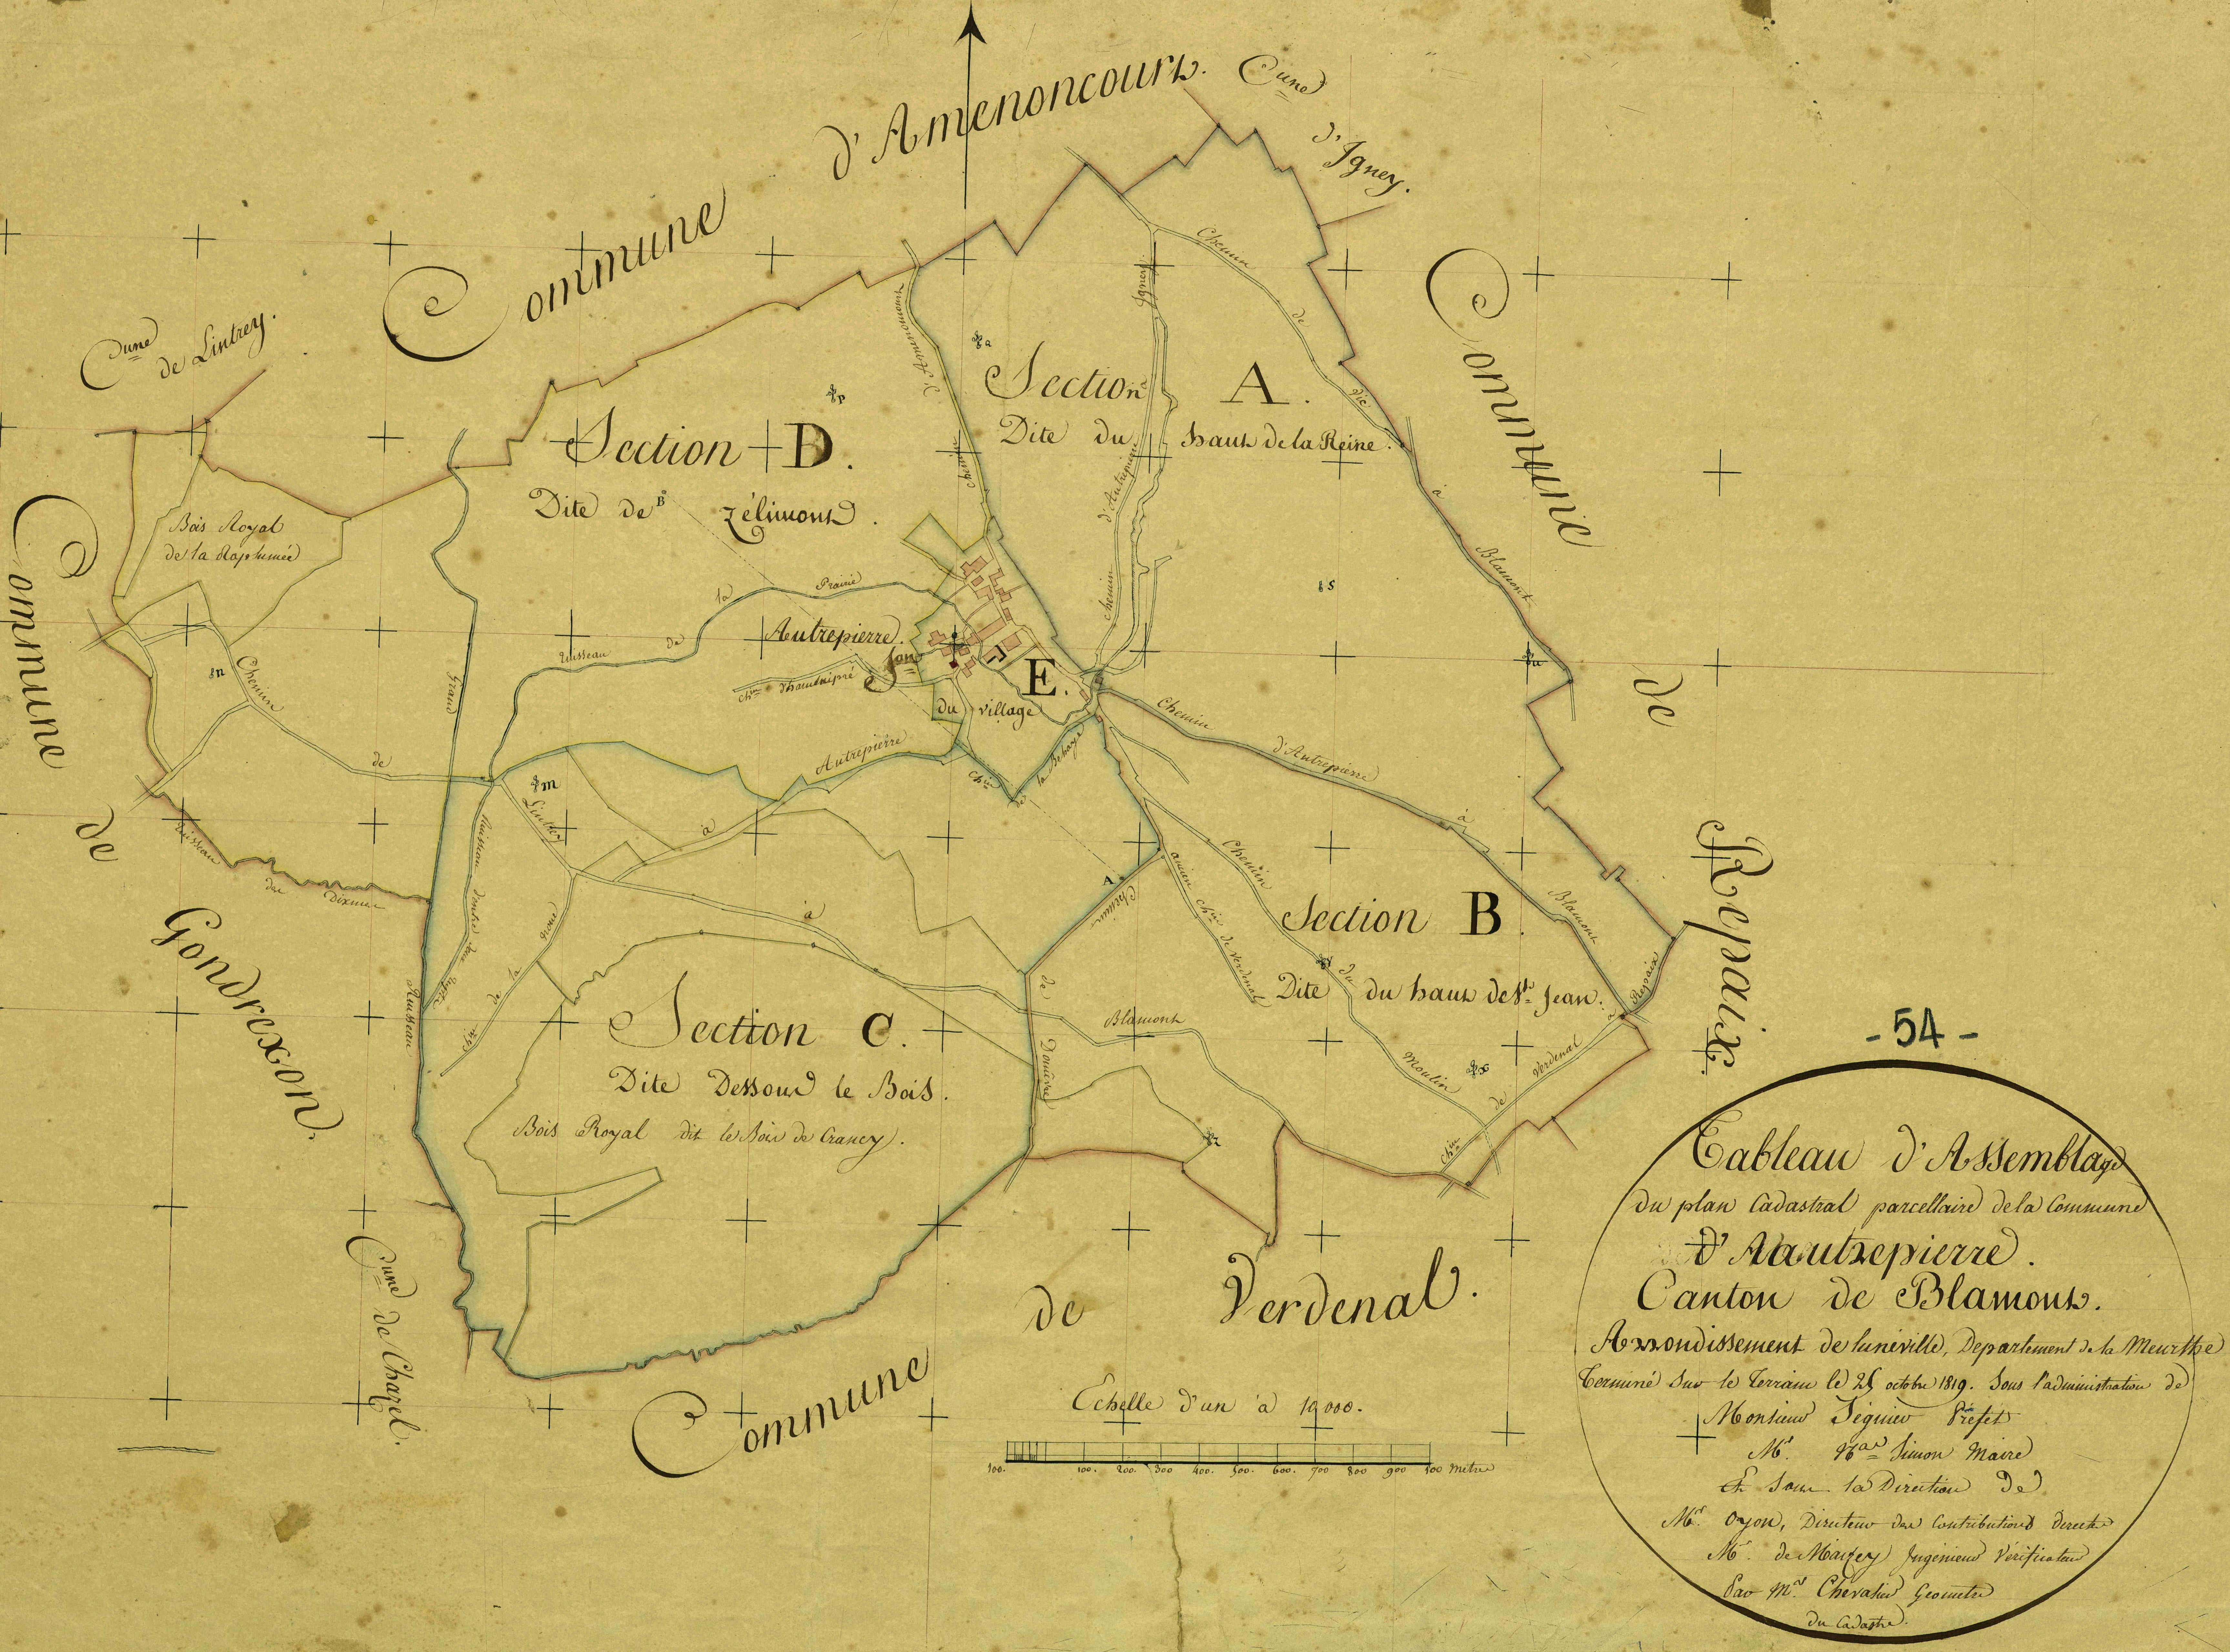 Commune d'Amenoncourt.
Cune d'Igney.
Cune de Lintrey.
Commune de Repaix.
Commune de Gondrexon.
Cune de Chazel.
Commune de Verdenal.
Section A.
Dite du haut de la Reine.
Section D.
Dite de Zélimont.
Bois Royal
de la
Autrepierre.
Son E.
du village
Section B.
Dite du haut de St Jean.
Section C.
Dite Dessous le Bois.
Bois Royal dit le Bois de Crancy.
Chemin de Vic à Blamont
Chemin d'Autrepierre à Igney
Chemin d'Amenoncourt
Ruisseau de la Prairie
Chin
Autrepierre
Chin de la Behaye
Chemin d'Autrepierre à Blamont
Chemin du Moulin
ancien chin de Verdenal
Chin de Verdenal à Repaix
Chemin de Domèvre
Chemin de Lintrey à Blamont
Grand Ruisseau
Ruisseau
Chin de la
- 54 -
Tableau d'Assemblage
du plan Cadastral parcellaire de la Commune
d'Autrepierre.
Canton de Blamont.
Arrondissement de lunéville, Departement de la Meurthe
Terminé sur le Terrain le 25 octobre 1819. Sous l'administration de
Monsieur Séguier Préfet
Mr. Simon Maire
Et sous la Direction de
Mr. Oyon, Directeur des Contributions directes
Mr. de Maixey Ingénieur Vérificateur
Par Mr. Chevalier Géometre
du Cadastre.
Echelle d'un à 10,000.
100. 100. 200. 300 400. 500. 600. 700 800 900 100 mètres